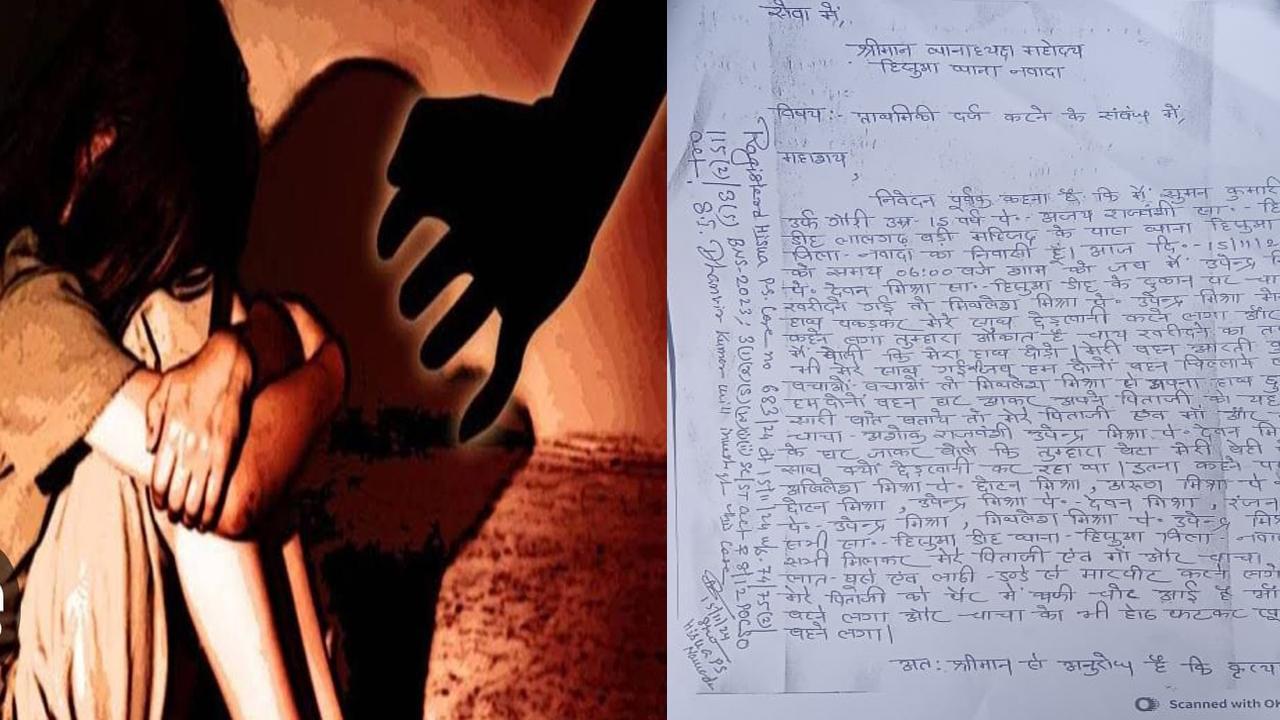 सेवा में,
श्रीमान थानाध्यक्ष महोदय
हिसुआ थाना नवादा
विषय:- प्राथमिकी दर्ज करने के संबंध में,
महाशय,
निवेदन पूर्वक कहना है कि मैं सुमन कुमारी
उर्फ गौरी उम्र- 15 वर्ष पे०- अजय राजवंशी सा०- हि
डीह लालगढ़ बड़ी मस्जिद के पास थाना हिसुआ
जिला- नवादा का निवासी हूँ। आज दि०- 15/11/2
को समय 06:00 बजे शाम को जब मैं उपेन्द्र मि
पे० देवन मिश्रा सा०- हिसुआ डीह के दुकान पर चा
खरीदने गई तो मिथलेश मिश्रा पे० उपेन्द्र मिश्रा मे
हाथ पकड़कर मेरे साथ छेड़खानी करने लगा और
कहने लगा तुम्हारा औकात है चाय खरीदने का त
मैं बोली कि मेरा हाथ छोड़ो। मेरी बहन आरती कु
भी मेरे साथ गई थी जब हम दोनों बहन चिल्लाये
बचाओ बचाओ तो मिथलेश मिश्रा से अपना हाथ छु
हम दोनों बहन घर आकर अपने पिताजी को यह
सारी बात बताये तो मेरे पिताजी एवं माँ और
चाचा- अशोक राजवंशी उपेन्द्र मिश्रा पे०- देवन मि
के घर जाकर बोले कि तुम्हारा बेटा मेरी बेटी
साथ क्यों छेड़खानी कर रहा था। इतना कहने पर
अखिलेश मिश्रा पे०- छोटन मिश्रा, अरुण मिश्रा पे
छोटन मिश्रा, उपेन्द्र मिश्रा पे०- देवन मिश्रा, रंजन
पे०- उपेन्द्र मिश्रा, मिथलेश मिश्रा पे० उपेन्द्र मि
सभी सा०- हिसुआ डीह थाना- हिसुआ जिला- नवा
सभी मिलकर मेरे पिताजी एवं माँ और चाचा
लात- घुसे एवं लाठी- डण्डे से मारपीट करने लगे
मेरे पिताजी को पैर में काफी चोट आई है
बहने लगा और चाचा का भी होठ फटकर खू
बहने लगा।
अतः श्रीमान से अनुरोध है कि कृत्य
Registered Hisua P.S. Case no 683/24 d. 15/11/24 u/s. 74/75(2)/
115(2)/3(5) BNS-2023; SC/ST act- & 8/12 POCSO
act.
15/11/24
Hisua P.S.
Nawada
Scanned with O